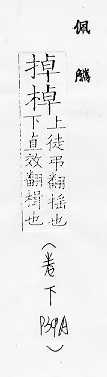 佩觿
掉棹
上徒弔翻搖也
下直效翻楫也
（卷下 P39A）